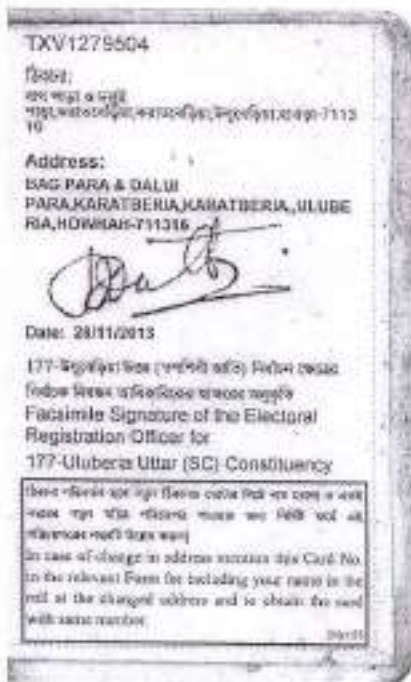 TXV1279504
ঠিকানা:
বাগ পাড়া ও দলুই
পাড়া,করাতবেড়িয়া,করাতবেড়িয়া,উলুবেড়িয়া,হাওড়া-7113
16
Address:
BAG PARA & DALUI
PARA,KARATBERIA,KARATBERIA,,ULUBE
RIA,HOWRAH-711316
Date: 28/11/2013
177-উলুবেড়িয়া উত্তর (তপশিলী জাতি) নির্বাচন ক্ষেত্রের
নির্বাচক নিবন্ধন আধিকারিকের স্বাক্ষরের অনুকৃতি
Facsimile Signature of the Electoral
Registration Officer for
177-Uluberia Uttar (SC) Constituency
In case of change in address mention this Card No.
in the relevant Form for including your name in the
roll at the changed address and to obtain the card
with same number.